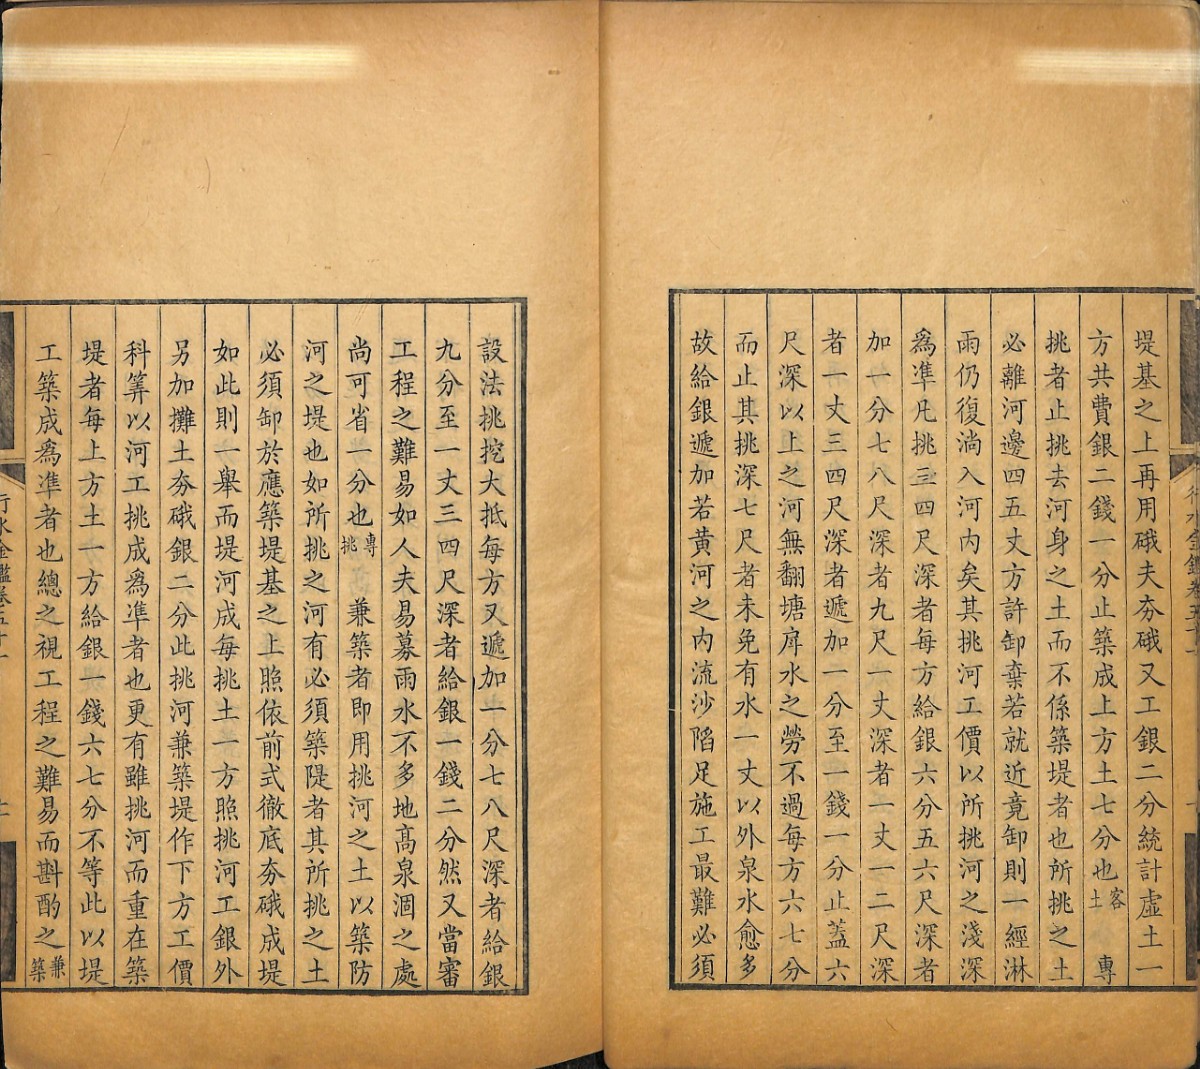 堤基之上再用硪夫夯硪又工銀二分統計虛土一
方共費銀二錢一分止築成上方土七分也客土 專
挑者止挑去河身之土而不係築堤者也所挑之土
必離河邊四五丈方許卸棄若就近竟卸則一經淋
雨仍復淌入河内矣其挑河工價以所挑河之淺深
爲準凡挑三四尺深者每方給銀六分五六尺深者
加一分七八尺深者九尺一丈深者一丈一二尺深
者一丈三四尺深者遞加一分至一錢一分止蓋六
尺深以上之河無翻塘戽水之勞不過每方六七分
而止其挑深七尺者未免有水一丈以外泉水愈多
故給銀遞加若黄河之内流沙陷足施工最難必須
設法挑挖大抵每方又遞加一分七八尺深者給銀
九分至一丈三四尺深者給銀一錢二分然又當審
工程之難易如人夫易募雨水不多地高泉涸之處
尚可省一分也專挑 兼築者即用挑河之土以築防
河之堤也如所挑之河有必須築隄者其所挑之土
必須卸於應築堤基之上照依前式徹底夯硪成堤
如此則一舉而堤河成每挑土一方照挑河工銀外
另加攤土夯硪銀二分此挑河兼築堤作下方工價
科筭以河工挑成爲準者也更有雖挑河而重在築
堤者每上方土一方給銀一錢六七分不等此以堤
工築成爲準者也總之視工程之難易而斟酌之兼築
行水金鑑卷五十一